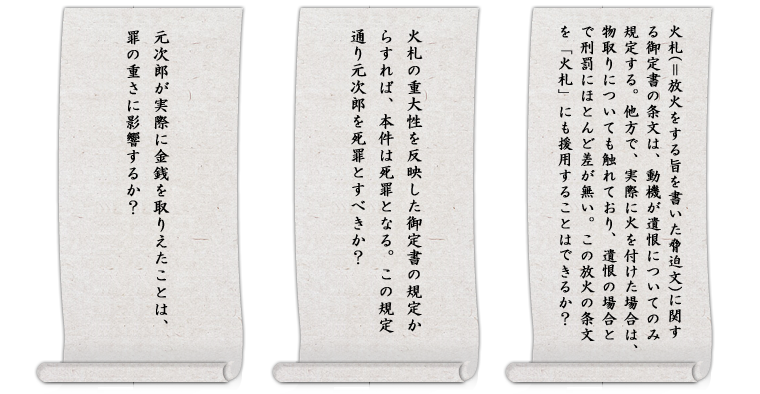 火札(=放火をする旨を書いた脅迫文)に関す
る御定書の条文は、動機が遺恨についてのみ
規定する。他方で、実際に火を付けた場合は、
物取りについても触れており、遺恨の場合と
で刑罰にほとんど差が無い。この放火の条文
を「火札」にも援用することはできるか？
火札の重大性を反映した御定書の規定か
らすれば、本件は死罪となる。この規定
通り元次郎を死罪とすべきか？
元次郎が実際に金銭を取りえたことは、
罪の重さに影響するか？